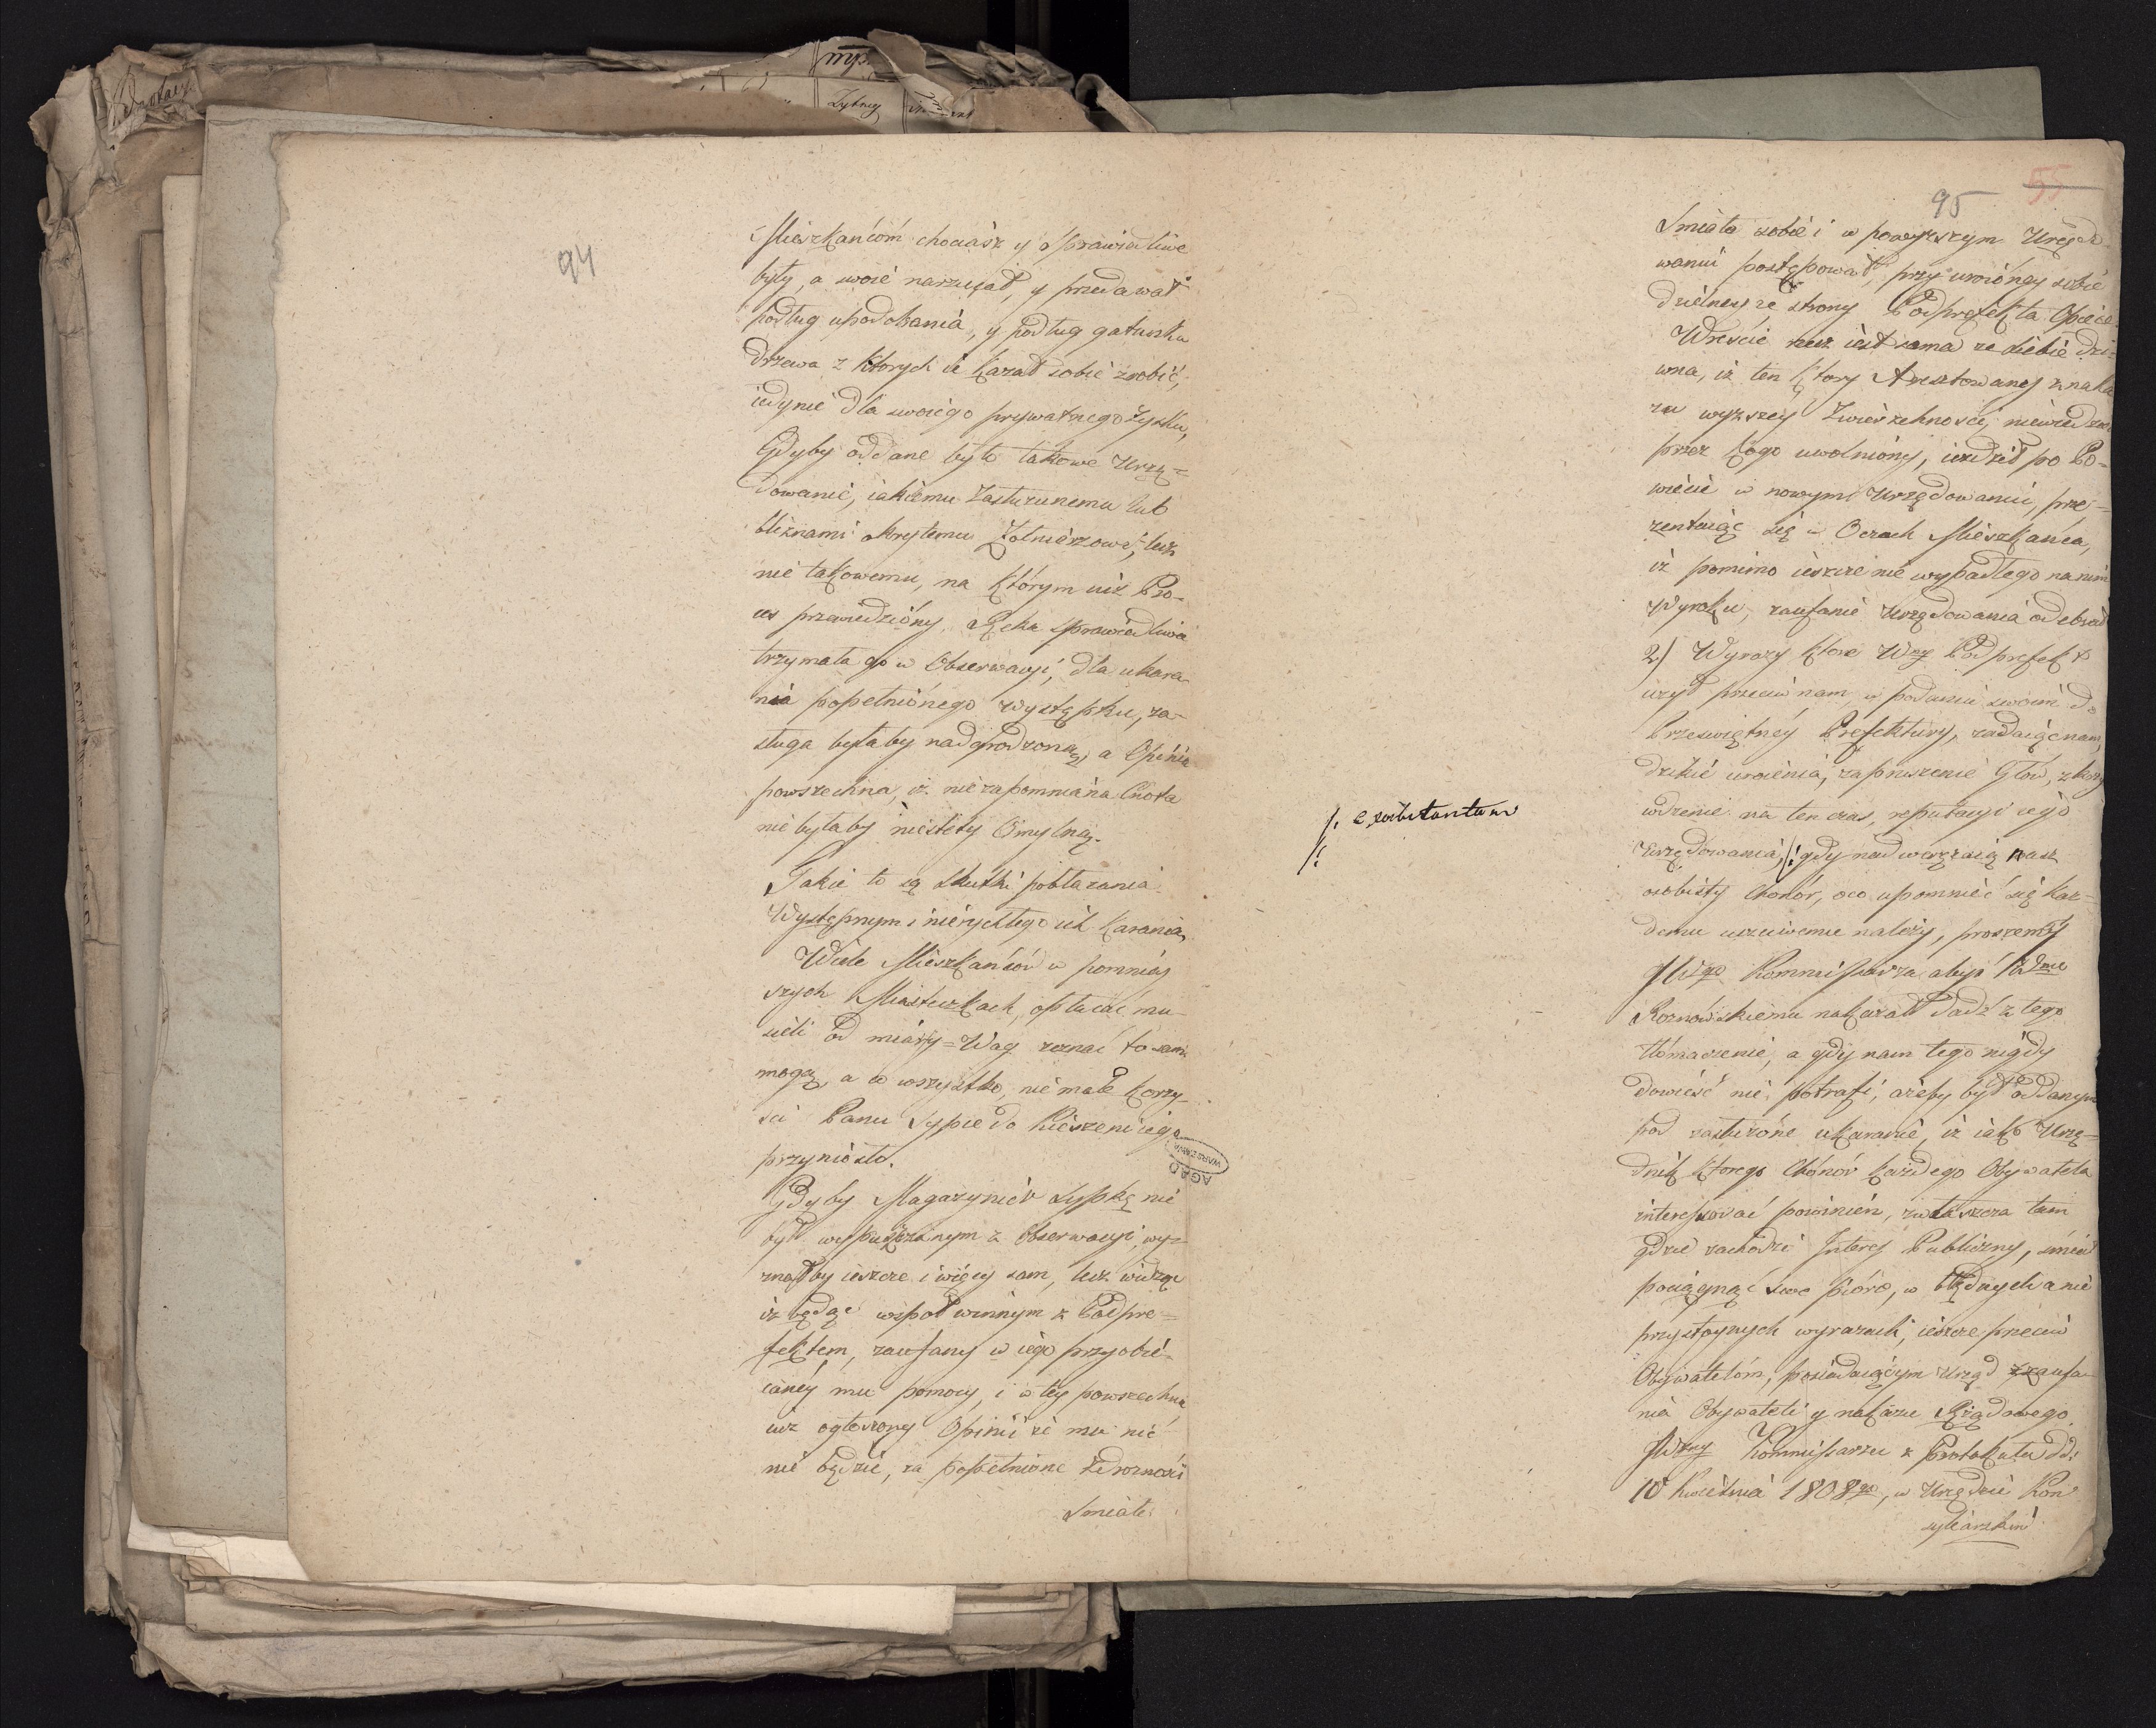 94
Mieszkańcóm chociasz y sprawiedliwe
były, a swoie narzucał, y przedawał
podług upodobania, y podług gatunku
drzewa z ktorych ie kazał sobie zrobić,
iedynie dla swoiego prywatnego zysku,
Gdyby oddane było takowe Urzę=
dowanie, iakiemu Zasłużonemu lub
bliznami okrytemu Żołnierzowi, lecz
nie takowemu, na którym iuż Pro-
ces przewiedziony, Ręka sprawiedliwa
trzymała go w Obserwacyi, dla ukara-
nia popełnionego Występku, za-
sługa byłaby nadgrodzoną, a Opinia
powszechna, iż niezapomniana Cnota
nie byłaby niestety Omylną.
Takie to są skutki pobłazania
Występnym i nierychłego ich karania,
Wiele Mieszkańców w pomniey
szych Miasteczkach, opłacać mu-
sieli od miary=Wag zeznać to sami
mogą, a to wszystko, nie małe korzy-
ści Panu Sypce do Kieszeni iego
przyniosło.
Gdyby Magazynier Sypkę nie
był wypuszczonym z Obserwacyi, wy=
znałby ieszcze i więcy sam, lecz widząc
iż będąc wspoł winnym z Podpre=
fektem, zaufany w iego przyobie-
caney mu pomocy, i w tey powszechnie
iuz ogłoszony Opinii że mu nic
nie będzie, za popełnione zdrozności
Smiało
AGAD
WARSZAWA
95
55
Smiało sobie i w powyższym Urzędo
waniu postępował, przy umioney sobie
dzielney ze strony Podprefekta Opiece.
Wreście rzecz iest sama ze siebie dzi-
wna, iż ten ktory Aresztowany z naka
zu wyzszey Zwierzchnosci, niewiedzieć
przez kogo uwolniony, iezdził po Po=
wiecie w nowym Urzędowaniu, pre=
zentuiąc się w Oczach Mieszkańca,
iż pomimo ieszcze nie wypadłego na nim
Wyroku, zaufanie Urzędowania odebrał
2) Wyrazy ktore Wny Podprefekt
użył przeciw nam, w podaniu swoim do
Prześwietney Prefektury, zadaiąc nam,
dzikie uroienia, zapruszenie Głów,
wdzenie na ten czas, reputacyi iego
Urzędowania, /: gdy nadwerężaią nasz
/: exorbitantum
:/
osobisty Chonór, oco upomnieć się kaz-
demu uczciwemu należy, proszemy
JWgo Kommissarza, abyś
Roznowskiemu nakazał dadź z tego
tłómaczenie, a gdy nam tego nigdy
dowieść nie potrafi, ażeby był oddanym
pod zasłużone ukaranie, iż iako Urzę=
dnik ktorego Chónór każdego Obywatela
interessować powinien, zwłaszcza tam
gdzie zachodzi Interes Publiczny, śmiał
pociągnąć swe pióro, w błędnych a nie
przystoynych wyrazach, ieszcze przeciw
Obywatelóm, posiadaiącym Urząd z zaufa-
nia Obywateli y nakazu Rządowego.
JWny Kommissarzu z Protokułu dd:
10 Kwietnia 1808go, w Urzędzie Kon
syliarskim